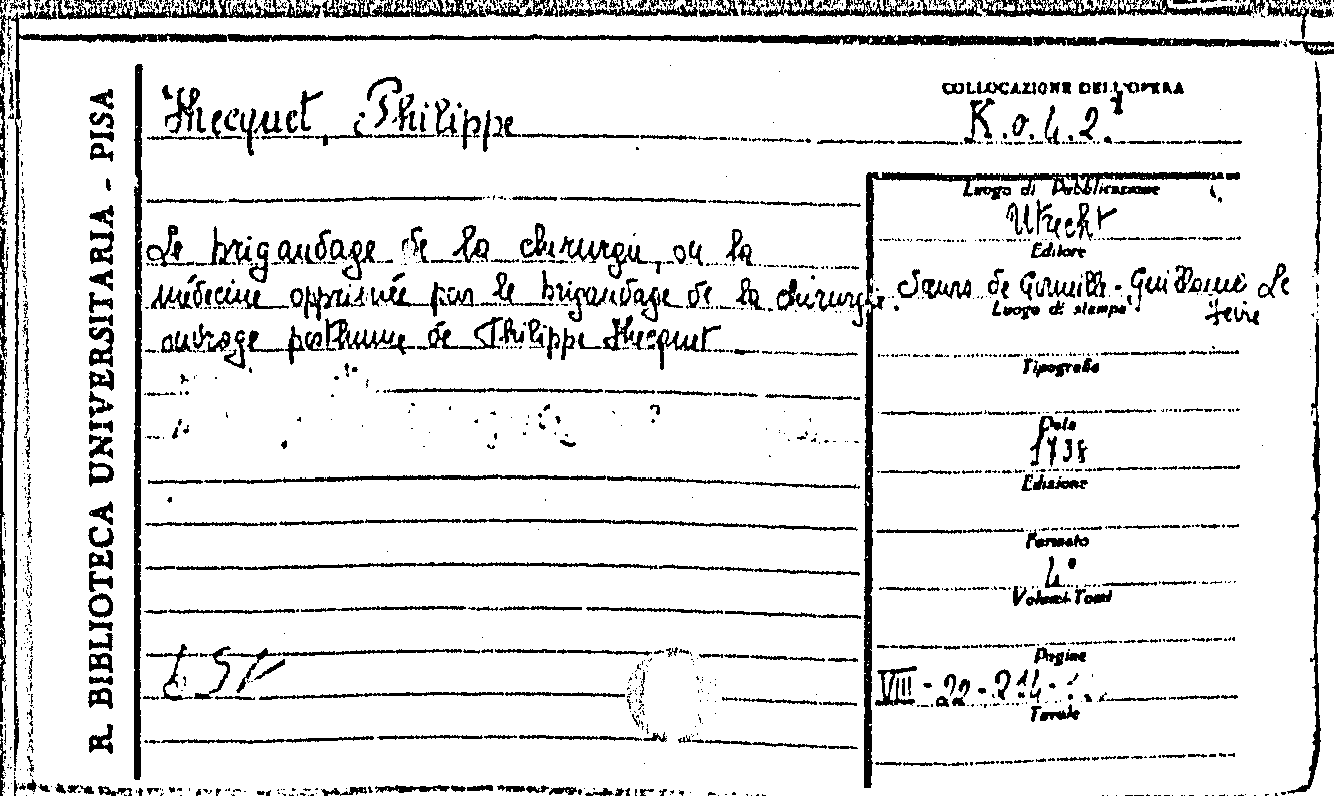 R. BIBLIOTECA UNIVERSITARIA - PISA
Hecquet, Philippe
COLLOCAZIONE DELL'OPERA
K.o.4.2.
Le brigandage de la chirurgie, ou la
médecine opprimée par le brigandage de la chirurgie.
ouvrage posthume de Philippe Hecquet
Luogo di Pubblicazione
Utrecht
Editore
Sœurs de Corneille-Guillaume Le
Fevre
Luogo di stampa
Tipografia
Data
1738
Edizione
Formato
4°
Volumi-Tomi
Pagine
VIII - 22 - 214 -
Tavole